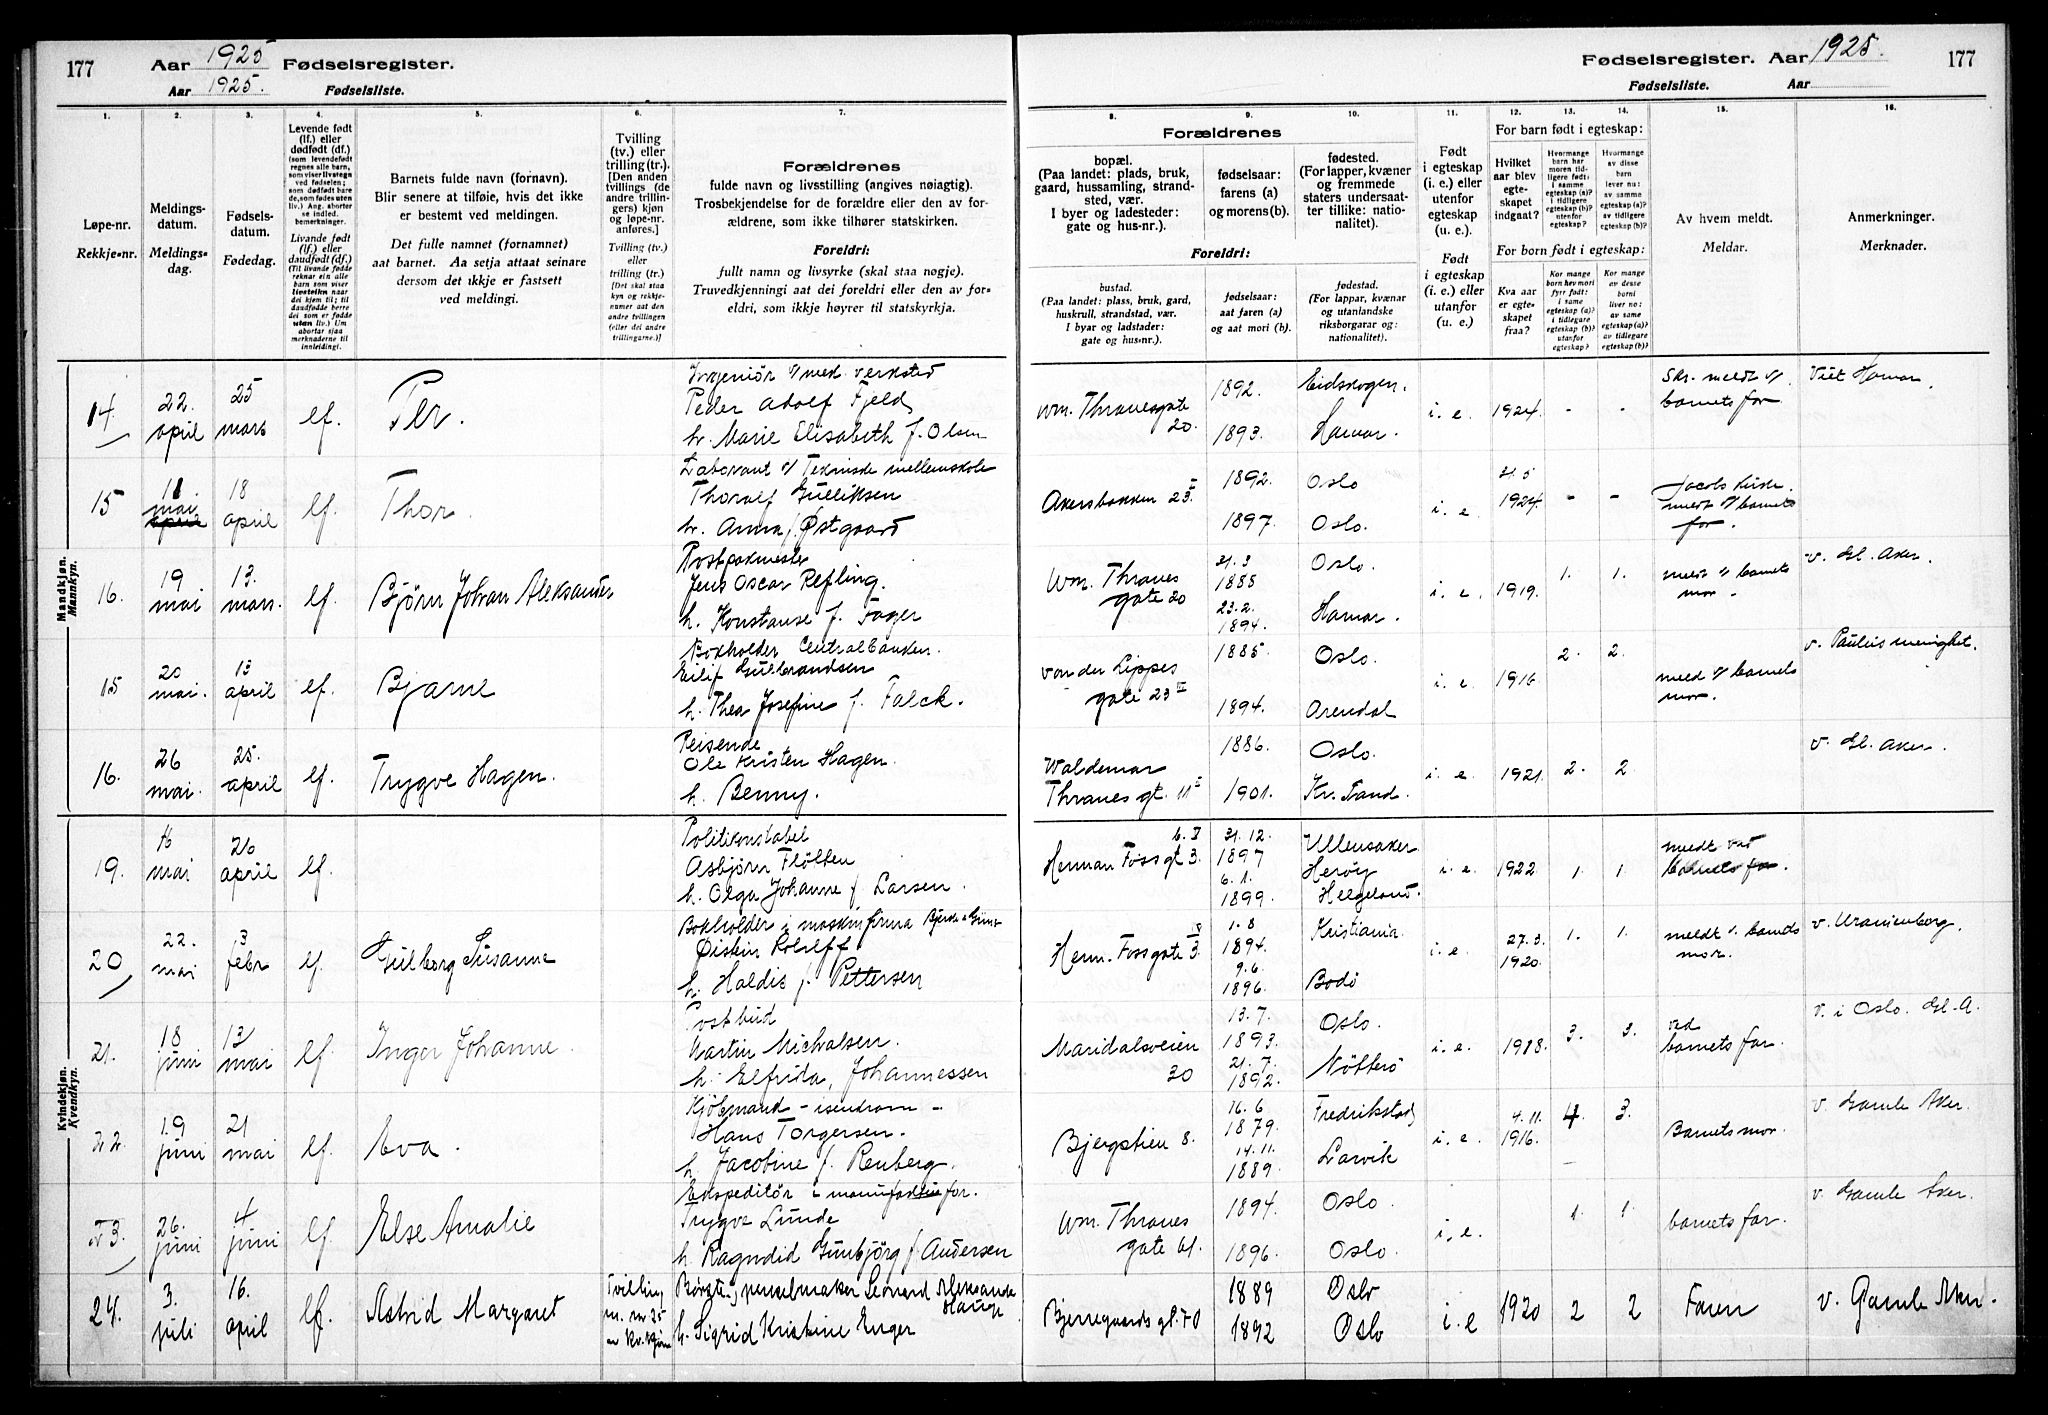 177 Aar 1925 Fødselsregister.
Aar 1925. Fødselsliste.
Fødselsregister. Aar 1925. 177
Fødselsliste. Aar
1. 2. 3. 4. 5. 6. 7. 8. 9. 10. 11. 12. 13. 14. 15. 16.
Løpe-nr.
Rekkje-nr.
Meldings-
datum.
Meldings-
dag.
Fødsels-
datum.
Fødedag.
Levende født
(lf.) eller
dødfødt (df.)
(som levendefødt
regnes alle barn,
som viser livstegn
ved fødselen;
som dødfødt bare
de, som fødes uten
liv.) Ang. aborter
se indled.
bemerkninger.
Livande født
(lf.) eller
daudfødt (df.)
(Til livande fødde
reknar ein alle
born som viser
livsteikn naar
dei kjem til; til
daudfødde berre
dei som er fødde
utan liv.) Um
abortar sjaa
merknaderne til
innleidingi.
Barnets fulde navn (fornavn).
Blir senere at tilføie, hvis det ikke
er bestemt ved meldingen.
Det fulle namnet (fornamnet)
aat barnet. Aa setja attaat seinare
dersom det ikkje er fastsett
ved meldingi.
Tvilling
(tv.) eller
trilling (tr.).
[Den anden
tvillings (de
andre trillin-
gers) kjøn
og løpe-nr.
anføres.]
Tvilling (tv.)
eller
trilling (tr.)
[Det skal staa
kyn og rekkje-
numer aat den
andre tvillingen
(eller dei andre
trillingarne.)]
Forældrenes
fulde navn og livsstilling (angives nøiagtig).
Trosbekjendelse for de forældre eller den av for-
ældrene, som ikke tilhører statskirken.
Foreldri:
fullt namn og livsyrke (skal staa nøgje).
Truvedkjenningi aat dei foreldri eller den av for-
eldri, som ikkje høyrer til statskyrkja.
Forældrenes
bopæl.
(Paa landet: plads, bruk,
gaard, hussamling, strand-
sted, vær.
I byer og ladesteder:
gate og hus-nr.).
fødselsaar:
farens (a)
og morens (b).
fødested.
(For lapper, kvæner
og fremmede
staters undersaat-
ter tillike: natio-
nalitet).
Foreldri:
bustad.
(Paa landet: plass, bruk, gard,
huskrull, strandstad, vær.
I byar og ladstader:
gate og hus-nr.).
fødselsaar:
aat faren (a)
og aat mori (b).
fødestad.
(For lappar, kvænar
og utanlandske
riksborgarar og:
nationalitet).
Født
i egteskap
(i. e.) eller
utenfor
egteskap
(u. e.).
Født
i egteskap
(i. e.) eller
utanfor
(u. e.).
For barn født i egteskap:
Hvilket
aar blev
egte-
skapet
indgaat?
Hvormange
barn har
moren tid-
ligere født:
i samme
egteskap (a)?
i tidligere
egteskap (b)?
utenfor
egteskap?
Hvormange
av disse
barn
lever nu:
av samme
egteskap (a)?
av tidligere
egteskap (b)?
For born født i egteskap:
Kva aar
er egte-
skapet
fraa?
Kor mange
born hev mori
fyrr født:
i same
egteskap (a)?
i tidlegare
egteskap (b)?
utanfor
egteskap?
Kor mange
av desse
borni
liver no:
av same
egteskap (a)?
av tidlegare
egteskap (b)?
Av hvem meldt.
Meldar.
Anmerkninger.
Merknader.
Mandkjøn.
Mannkyn.
14. 22. april 25 mars lf. Per.
Ingeniør v/ mek. verksted
Peder Adolf Fjeld
h. Marie Elisabeth f. Olsen
Wm. Thranesgate 20. 1892. 1893. Eidskogen. Hamar. i. e. 1924. - - Skr. meldt v/ barnets far. Viet Hamar.
15 11. mai april 18 april lf. Thor.
Laborant v/ Tekniske mellemskole
Thoralf Gulliksen
h. Anna f. Østgaard
Akersbakken 23 I 1892. 1897. Oslo Oslo. i. e. 31. 5 1924. - - Jacobs kirke. meldt v/ barnets far.
16. 19 mai 13. mars. lf. Bjørn Johan Aleksander
Postpakmester
Jens Oscar Refling.
h. Konstanse f. Fager
Wm. Thranes gate 20 31. 3 1885 23. 2. 1894. Oslo. Hamar. i. e. 1919. 1. 1. meldt v/ barnets mor. v. Gl. Aker.
15 20 mai. 13 april lf. Bjarne
Bokholder Centralbanken.
Eilif Gulbrandsen
h. Thea Josefine f. Falck.
von der Lippes gate 23 III 1885 1894. Oslo. Arendal i. e. 1916 2. 2. meld v/ barnets mor. v. Paulus menighet.
16. 26 mai. 25. april lf. Trygve Hagen.
Reisende
Ole Kristen Hagen.
h. Benny.
Waldemar Thranes gt. 11 I 1886. 1901. Oslo. Kr. Sand. i. e. 1921. 2. 2. v. Gl. Aker.
Kvindekjøn.
Kvendkyn.
19. 16 mai 26 april lf.
Politikonstabel
Asbjørn Fløtten
h. Olga Johanne f. Larsen.
Herman Foss gt 3. b. V 31. 12. 1897 6. 1. 1899. Ullensaker Herøy Helgeland. i. e. 1922. 1. 1. meldt ved barnets far.
20 22. mai 3 febr lf. Gulborg Susanne
Bokholder i maskinfirma
Øistein Rolff
h. Haldis f. Pettersen
Herm. Fossgate 3 1. 8 1894. 9. 6. 1896. Kristiania. Bodø i. e. 27. 3. 1920. 1. 1. meldt v. barnets mor. v. Uranienborg.
21. 18 juni 13 mai lf. Inger Johanne.
Postbud
Martin Michalsen.
h. Elfrida, Johannessen
Maridalsveien 30 13. 7. 1893. 21. 7. 1892. Oslo. Nøtterø i. e. 1918. 3. 3. ved barnets far. v. i Oslo. Gl. A.
22. 19 juni 21 mai lf. Eva.
Kjøbmand - isenkram -
Hans Torgersen.
h. Jacobine f. Renberg.
Bjergstien 8. 16. 6 1879. 14. 11. 1889. Fredrikstad Larvik i. e. 4. 11. 1916. 4. 3. Barnets mor. v. Gamle Aker.
23. 26. juni 4 juni lf. Else Amalie
Ekspeditør i
Trygve Lunde
h. Ragndid Gunbjørg f. Andersen
Wm. Thranes gate 61. 1894. 1896. Oslo. Oslo. i. e. 1. 1. barnets far. v. Gamle Aker.
24. 3. juli 16. april lf. Astrid Margaret Tvilling m. nr 25 av Kv.kjøn
Børste- penselmaker Leonard Aleksander Hauge
h. Sigrid Kristine Enger
Bjerregaards gt. 70 1889 1892 Oslo Oslo i. e 1920 2 2 Faren v. Gamle Aker.